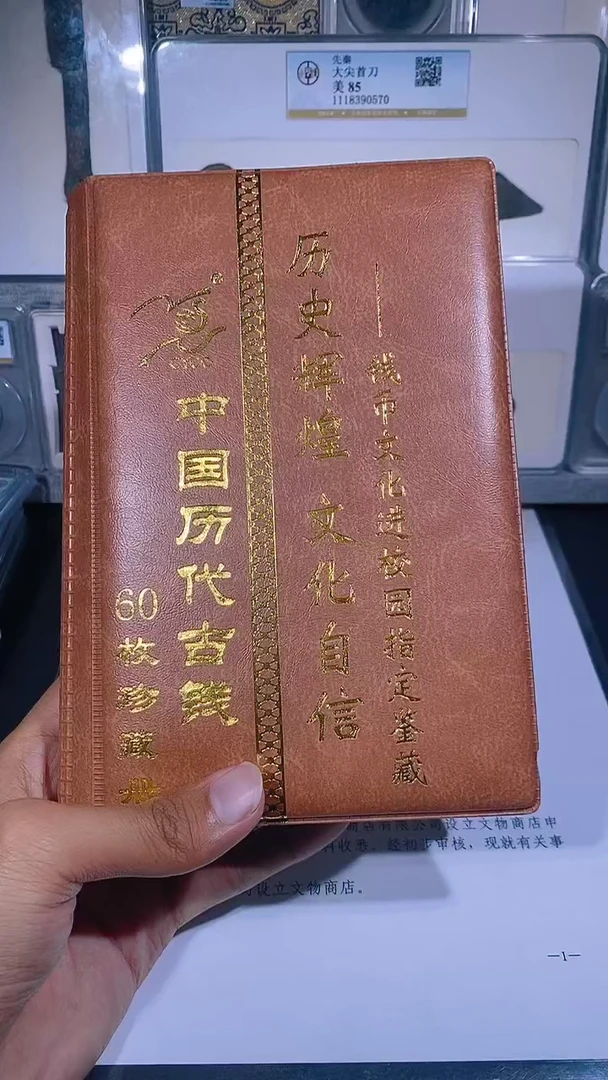 先秦
大尖首刀
美 85
1118390570
历史辉煌 文化自信
——钱币文化进校园指定鉴藏
中国历代古钱
60枚珍藏册
有限公司设立文物商店申
收悉。经初步审核，现就有关事
司设立文物商店。
—1—